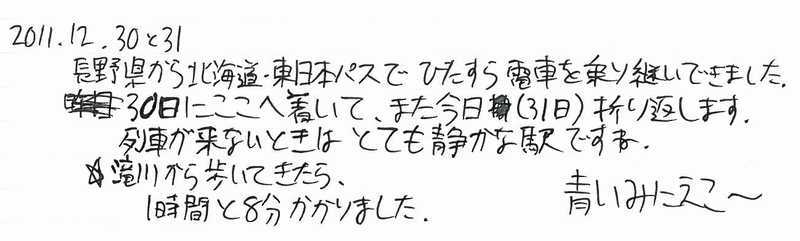 2011.12.30と31
長野県から北海道・東日本パスでひたすら電車を乗り継いできました.
30日にここへ着いて、また今日(31日)折り返します.
列車が来ないときはとても静かな駅ですね.
☆滝川から歩いてきたら、
1時間と8分かかりました.
青いみにえこ〜